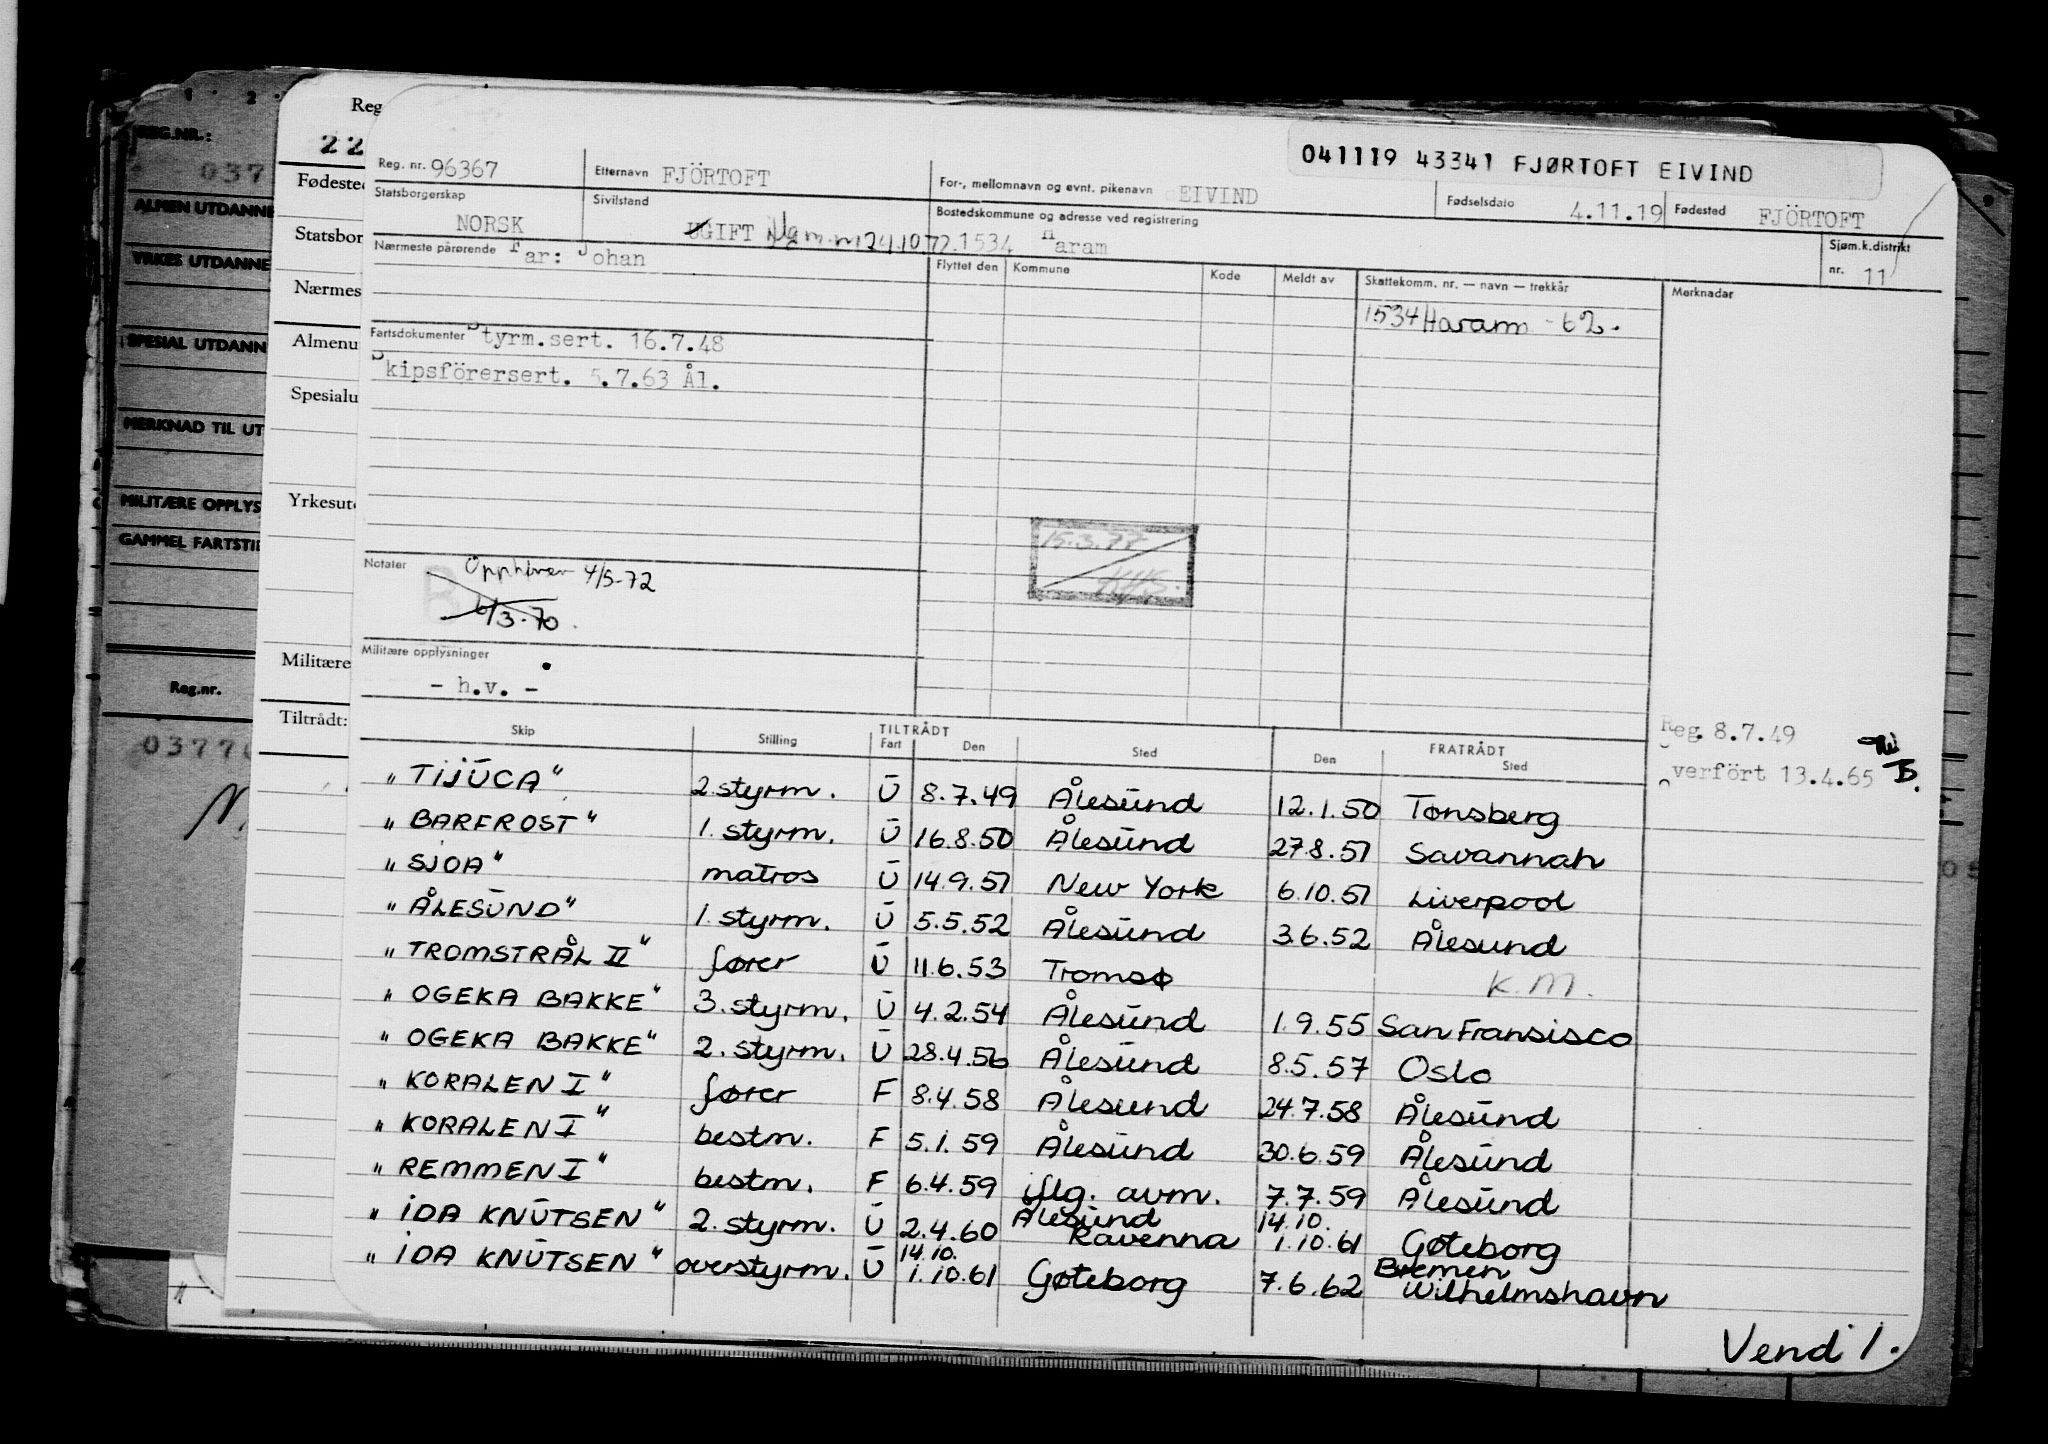 041119 43341 FJØRTOFT EIVIND
Reg. nr. 96367 Etternavn FJÖRTOFT For-, mellomnavn og evnt. pikenavn EIVIND Fødselsdato 4.11.19 Fødested FJÖRTOFT
Statsborgerskap NORSK Sivilstand UGIFT 24.10.72 Bostedskommune og adresse ved registrering 1534 Haram Sjøm.k.distrikt nr. 11
Nærmeste pårørende Far: Johan Flyttet den Kommune Kode Meldt av Skattekomm. nr. — navn — trekkår Merknader
1534 Haram - 62.
Fartsdokumenter Styrm.sert. 16.7.48
Skipsförersert. 5.7.63 Ål.
15.3.77
Notater Opphører 4/5-72
6/3-70.
Militære opplysninger
- h.v. -
Reg. 8.7.49
Overfört 13.4.65
TILTRÅDT FRATRÅDT
Skip Stilling Fart Den Sted Den Sted
"TIJUCA" 2 styrm. U 8.7.49 Ålesund 12.1.50 Tønsberg
"BARFROST" 1. styrm. U 16.8.50 Ålesund 27.8.51 Savannah
"SJOA" matros U 14.9.51 New York 6.10.51 Liverpool
"ÅLESUND" 1. styrm. U 5.5.52 Ålesund 3.6.52 Ålesund
"TROMSTRÅL II" fører U 11.6.53 Tromsø K.M.
"OGEKA BAKKE" 3. styrm. U 4.2.54 Ålesund 1.9.55 San Fransisco
"OGEKA BAKKE" 2. styrm. U 28.4.56 Ålesund 8.5.57 Oslo
"KORALEN I" fører F 8.4.58 Ålesund 24.7.58 Ålesund
"KORALEN I" bestm. F 5.1.59 Ålesund 30.6.59 Ålesund
"REMMEN I" bestm. F 6.4.59 iflg. avm. 7.7.59 Ålesund
"IDA KNUTSEN" 2. styrm. U 2.4.60 Ålesund Ravenna 14.10. 1.10.61 Gøteborg
"IDA KNUTSEN" overstyrm. U 14.10. 1.10.61 Gøteborg 7.6.62 Bremen Wilhelmshavn
Vend 1.
Reg
22
Fødested
Statsbor
Nærmes
Almenu
Spesialu
Yrkesut
Militære
Tiltrådt:
REG.NR.:
037
ALMEN UTDANNE
YRKES UTDANNE
SPESIAL UTDANN
MERKNAD TIL UT
MILITÆRE OPPLYS
GAMMEL FARTSTI
Reg.nr.
0377